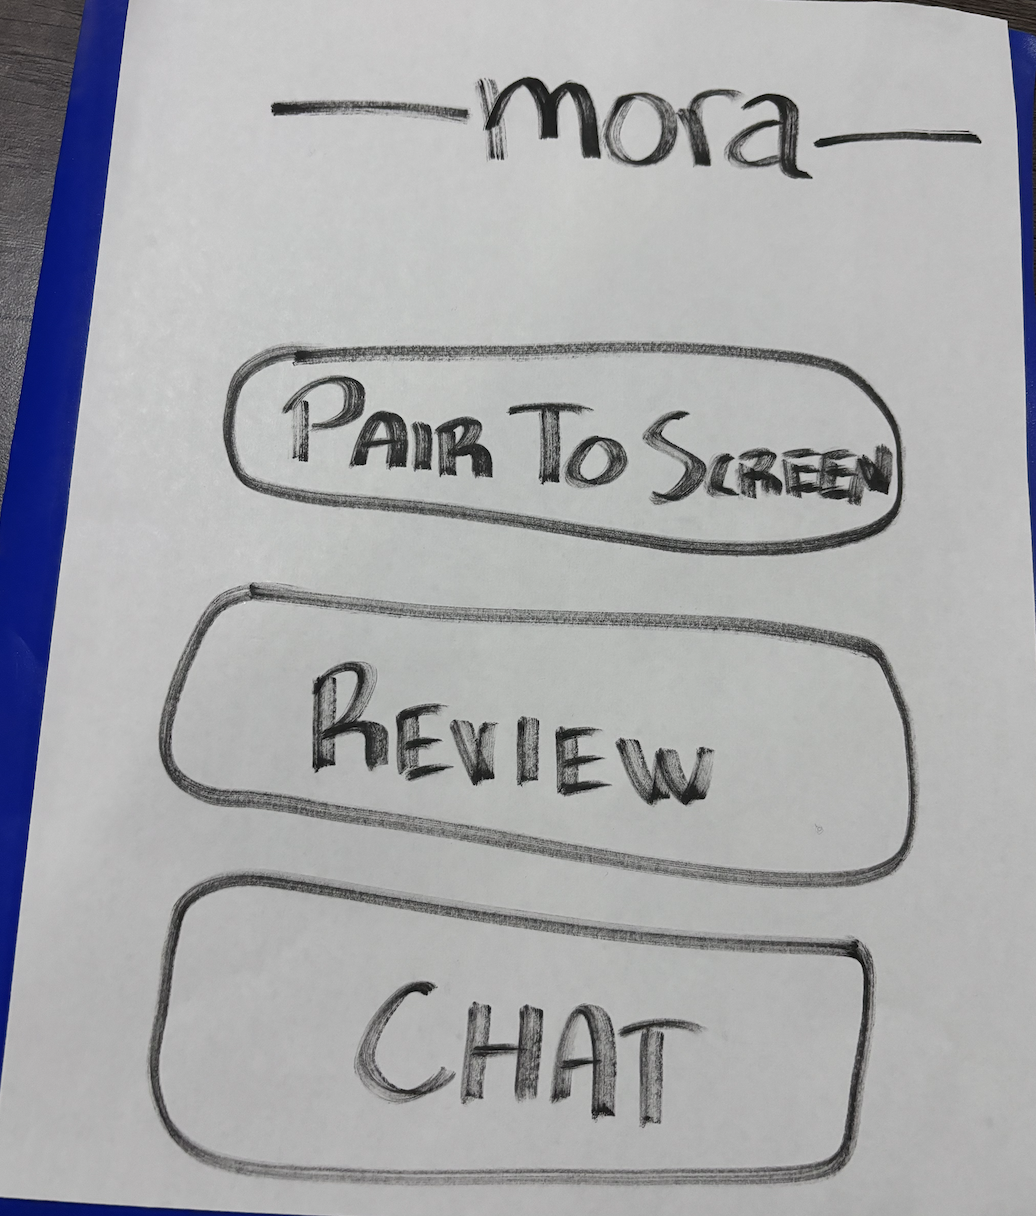 mora
PAIR TO SCREEN
REVIEW
CHAT